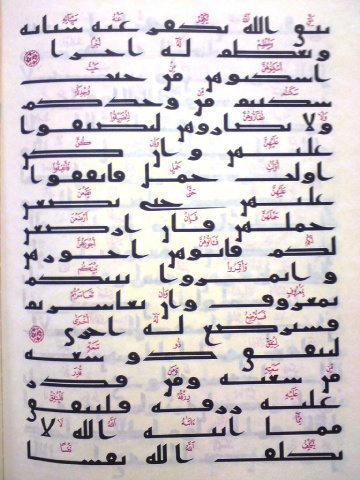 يتق الله يكفر عنه سياته
ويعظم له اجرا
اسكنوهن من حيث
سكنتم من وجدكم
ولا تضاروهن لتضيقوا
عليهن وان كن
اولت حمل فانفقوا
عليهن حتى يضعن
حملهن فان ارضعن
لكم فاتوهن اجورهن
واتمروا بينكم
بمعروف وان تعاسرتم
فسترضع له اخرى
لينفق ذو سعة
من سعته ومن قدر
عليه رزقه فلينفق
مما اتيه الله لا
يكلف الله نفسا